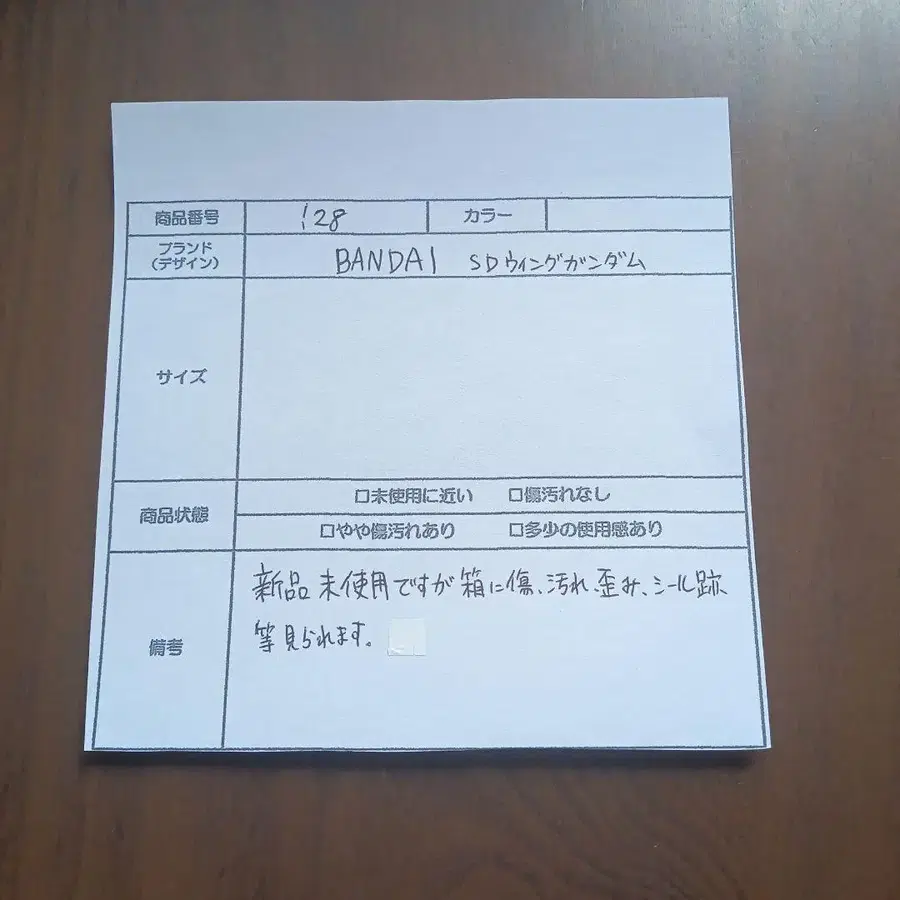 商品番号 128 カラー
ブランド
(デザイン) BANDAI SDウイングガンダム
サイズ
商品状態 □未使用に近い □傷汚れなし
□やや傷汚れあり □多少の使用感あり
備考 新品未使用ですが箱に傷、汚れ、歪み、シール跡、
等見られます。